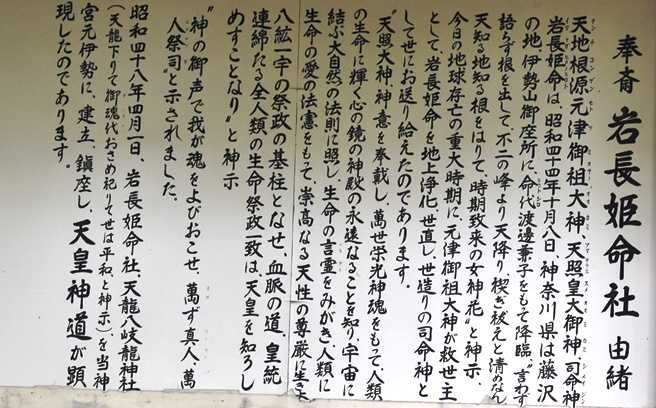 奉斎 岩長姫命社 由緒
天地根源元津御祖大神、天照皇大御神、司命神
岩長姫命は、昭和四十四年十月八日、神奈川県は藤沢
の地、伊勢山御座所に、命代渡邊兼子をもて降臨、〝言わず
語らず根を出して、不二の峰より天降り、禊ぎ祓えと清めなん
天知る地知る根をはりて、時期致来の女神花〟と神示、
今日の地球存亡の重大時期に、元津御祖大神が救世主
として、岩長姫命を地上浄化、世直し、世造りの司命神と
して世にお送り給えたのであります。
〝天照大神の神意を奉載し、萬世栄光神魂をもって、人類
の生命に輝く心の鏡の神殿の永遠なることを知り、宇宙に
結ぶ大自然の法則に照し、生命の言霊をみがき、人類に
生命の愛の法憲をもって、崇高なる天性の尊厳に生き
八紘一宇の祭政の基柱となせ、血脈の道、皇統
連綿たる全人類の生命祭政一致は、天皇を知ろし
めすことなり〟と神示
〝神の御声で我が魂をよびおこせ、萬ず真人、萬
人祭司〟と示されました。
昭和四十八年四月一日、岩長姫命社、天龍八岐龍神社
(天龍下りて御魂代おさめ祀りて世は平和と神示)を当神
宮元伊勢に、建立、鎮座し、天皇神道が顕
現したのであります。